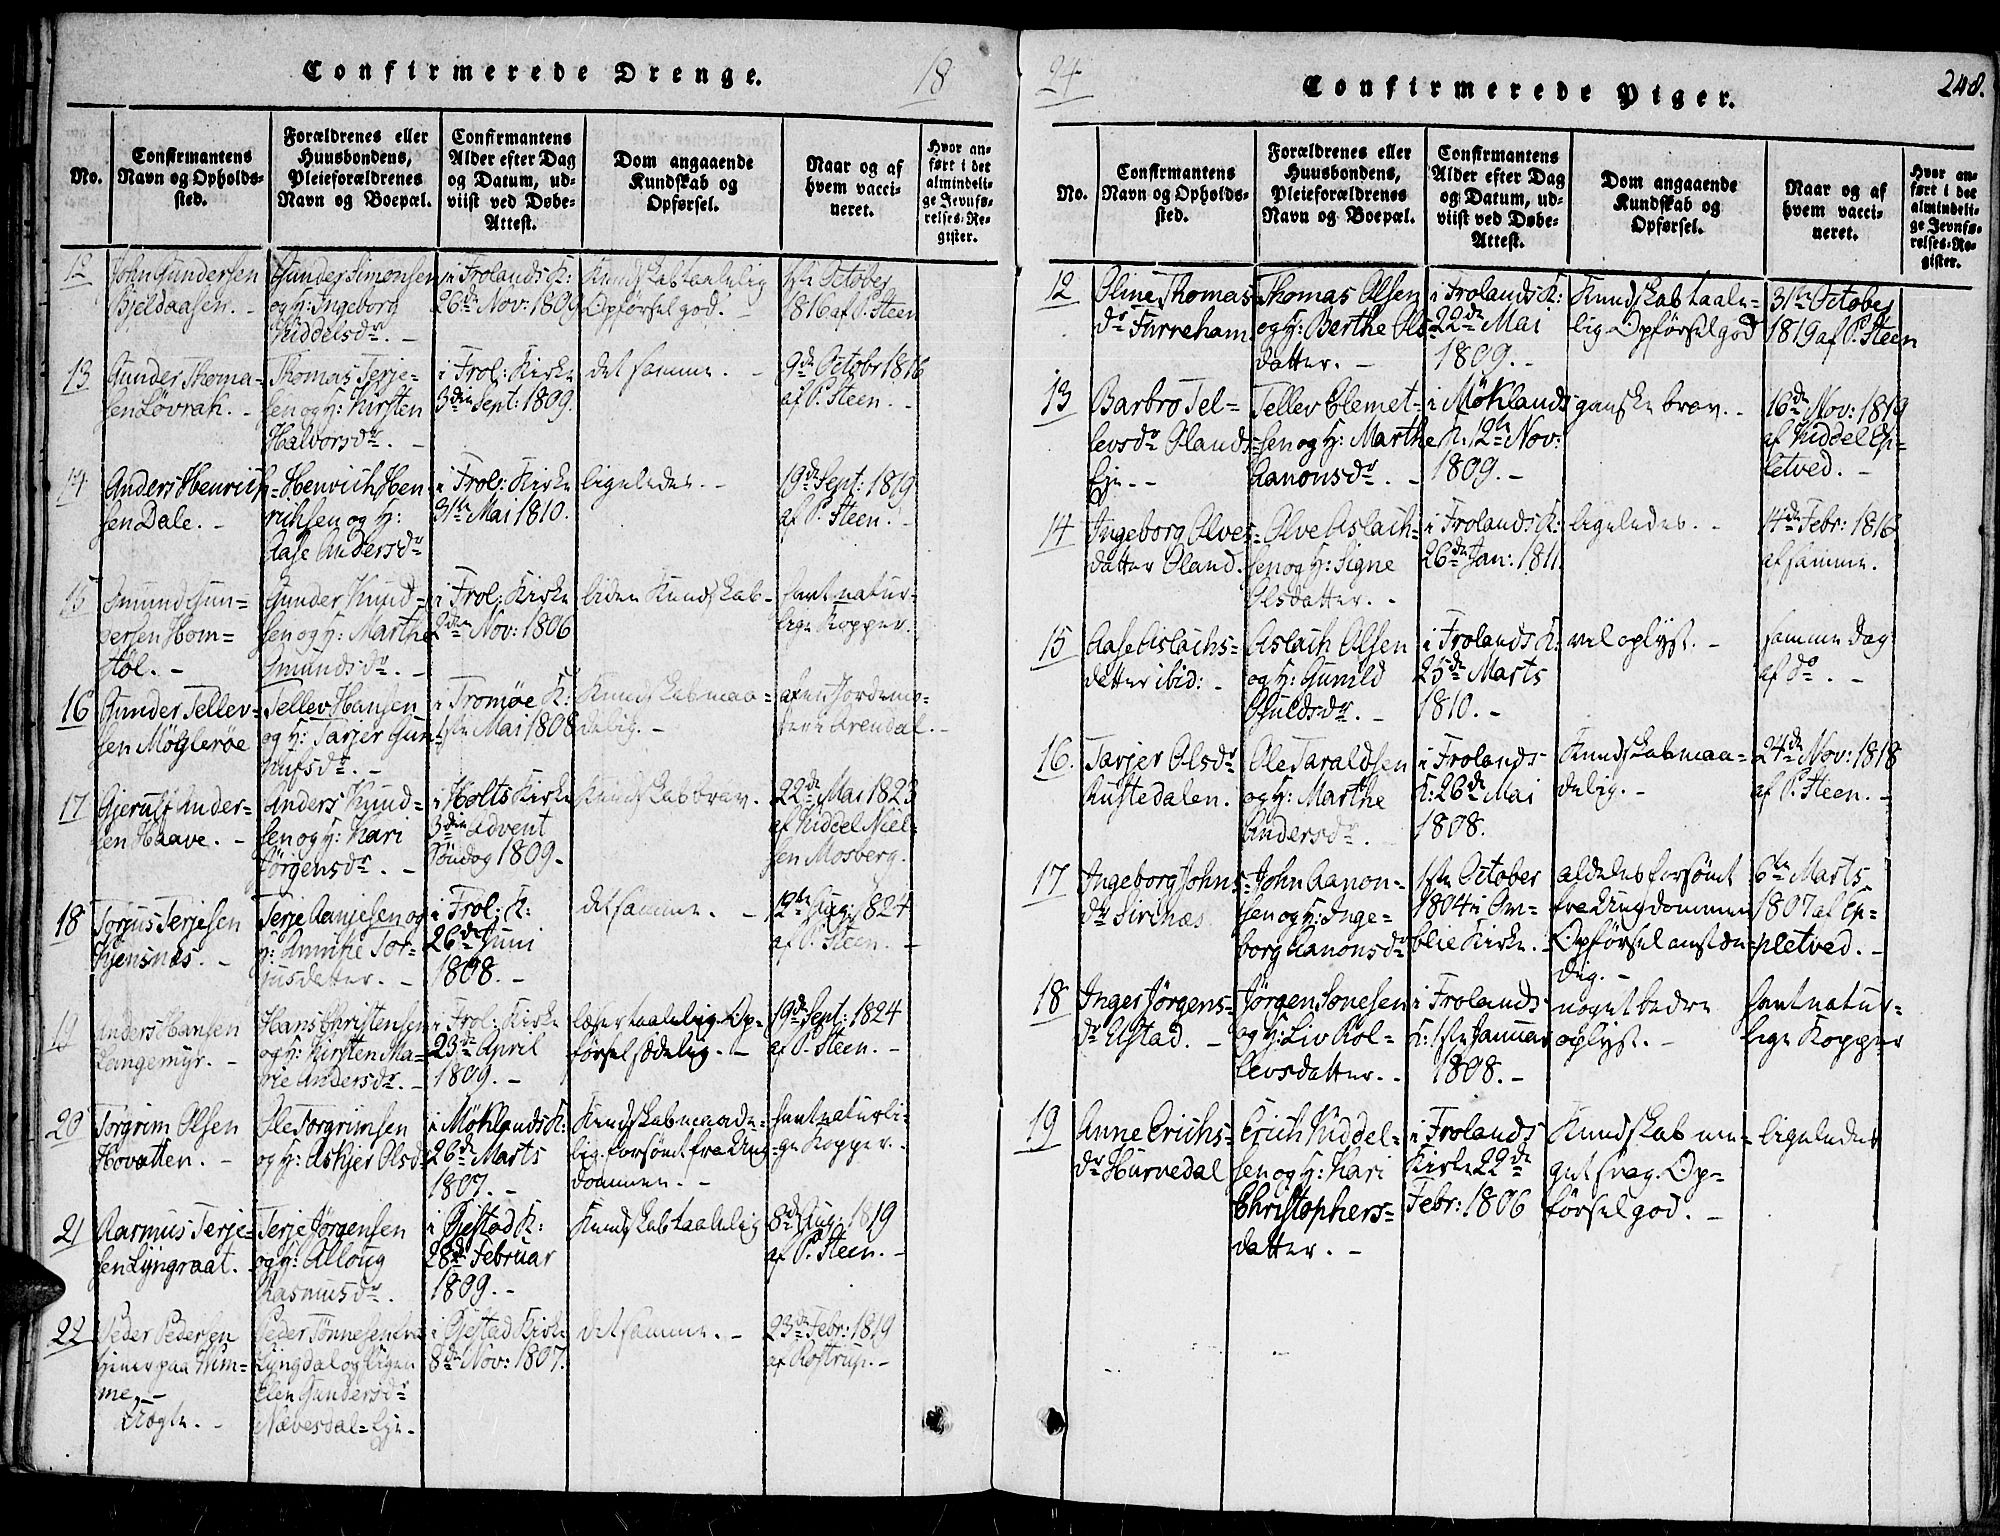 Confirmerede Drenge.
18
No.
Confirmantens
Navn og Opholds-
sted.
Forældrenes eller
Huusbondens,
Pleieforældrenes
Navn og Boepæl.
Confirmantens
Alder efter Dag
og Datum, ud-
viist ved Døbe-
Attest.
Dom angaaende
Kundskab og
Opførsel.
Naar og af
hvem vacci-
neret.
Hvor an-
ført i det
almindeli-
ge Jevnfø-
relses-Re-
gister.
12
John Gundersen
Bjeldaasen. -
Gunder Simonsen
og H: Ingeborg
Kiddelsdr. -
i Frolands K:
26de Nov: 1809
Kundskab taalelig
Opførsel god. -
1ste October
1816 af P. Steen
13
Gunder Thoma-
sen Løvrak. -
Thomas Terje-
sen og H: Kirsten
Halvorsdr. -
i Frol: Kirke
3die Sept: 1809.
det samme. -
9de Octobr 1816
af P. Steen. -
14
Anders Henrich-
sen Dale. -
Henrich Hen-
richsen og H:
Aase Andersdr
i Frol: Kirke
31te Mai 1810.
ligeledes. -
19de Sept: 1819
af P. Steen. -
15
Smund Gun-
dersen Hom-
støl. -
Gunder Knud-
sen og H: Marthe
Smundsdr. -
i Frol: Kirke
2den Nov: 1806
liden Kundskab -
havt natur-
lige Kopper.
16
Gunder Tellev-
sen Møglerøe
Tellev Hansen
og H: Tarjer Gun-
nufsdr. -
i Tromøe K:
1ste Mai 1808
Kundskab maa-
delig. -
af en Jordemo-
der i Arendal. -
17
Gjerulf Ander-
sen Haave. -
Anders Knud-
sen og H: Kari
Jørgensdr. -
i Holts Kirke
3die Advent
Søndag 1809 -
Kundskab brav.
22de Mai 1823
af Kiddel Niel-
sen Mosberg.
18
Torjus Terjesen
Hjensnæs. -
Terje Aaniesen og
H: Annike Tor-
jusdatter. -
i Frol: K:
26de Juni
1808. -
det samme. -
12te Aug: 1824
af P. Steen. -
19
Anders Hansen
Langemyr. -
Hans Christensen
og H: Kirsten Ma-
rie Andersdr. -
i Frol: Kirke
23de April
1809. -
læser taalelig Op-
førsel sædelig. -
19de Sept: 1824
af P. Steen. -
20
Torgrim Olsen
Hovatten. -
Ole Torgrimsen
og H: Askjer Olsd
i Møklands K:
26de Marts
1807. -
Kundskab maade-
lig forsømt fra Ung-
dommen. -
havt naturli-
ge Kopper. -
21
Aasmus Terje-
sen Lyngraat. -
Terje Jørgensen
og H: Alloug
Rasmusdr.
i Gjestad K:
28de Februar
1809. -
Kundskab taalelig
8de Aug: 1819
af P. Steen. -
22
Peder Pedersen
tjener paa Mim-
me -
Peder Tønnesen fra
Lyngdal og Pigen
Elen Gundersdr
Næbesdal-Eje -
i Gjestad Kirke
8de Nov: 1807.
det samme. -
23de Febr: 1819
af Rostrup. -
24
Confirmerede Piger.
248.
No.
Confirmantens
Navn og Opholds-
sted.
Forældrenes eller
Huusbondens,
Pleieforældrenes
Navn og Boepæl.
Confirmantens
Alder efter Dag
og Datum, ud-
viist ved Døbe-
Attest.
Dom angaaende
Kundskab og
Opførsel.
Naar og af
hvem vacci-
neret.
Hvor an-
ført i det
almindeli-
ge Jevnfø-
relses-Re-
gister.
12
Oline Thomas-
dr Furreham.
Thomas Olsen
og H: Berthe Ols-
datter. -
i Frolands K:
22de Mai
1809. -
Kundskab taale-
lig. Opførsel god
31te October
1819 af P. Steen
13
Barbro Tel-
levsdr Ølands-
Eje. -
Tellev Clemet-
sen og H: Marthe
Aanonsdr. -
i Møklands
K: 12te Nov:
1809. -
ganske brav. -
16de Nov: 1819
af Kiddel Ep-
letved. -
14
Ingeborg Olves-
datter Øland.
Olve Aslach-
sen og H: Signe
Olsdatter. -
i Frolands K:
26de Jan: 1811.
ligeledes. -
14de Febr: 1816
af samme.
15
Aase Aslachs-
datter ibid: -
Aslach Olsen
og H: Gunild
Gjuldsdr. -
i Frolands K:
25de Marts
1810. -
vel oplyst. -
samme Dag
af do. -
16.
Tarjer Olsdr
Rustedalen.
Ole Taraldsen
og H: Marthe
Andersdr. -
i Frolands
K: 26de Mai
1808.
Kundskab maa-
delig. -
24de Nov: 1818
af P. Steen. -
17
Ingeborg Johns-
dr Sirenæs
John Aanon-
sen og H: Inge-
borg Aanonsdr
1ste October
1804 i Om-
blie Kirke. -
aldeles forsømt
fra Ungdommen
Opførsel anstæn-
dig. -
6te Marts
1807 af Ep-
pletved. -
18
Inger Jørgens-
dr Ustad. -
Jørgen Sonesen
og H: Liv Rol-
levsdatter. -
i Frolands
K: 1ste Januar
1808. -
noget bedre
oplyst. -
havt natur-
lige Kopper
19
Anne Erichs-
dr Hurvedal
Erich Kiddel-
sen og H: Kari
Christophers-
datter. -
i Frolands
Kirke 22de
Febr: 1806
Kundskab me-
get svag. Op-
førsel god. -
ligeledes